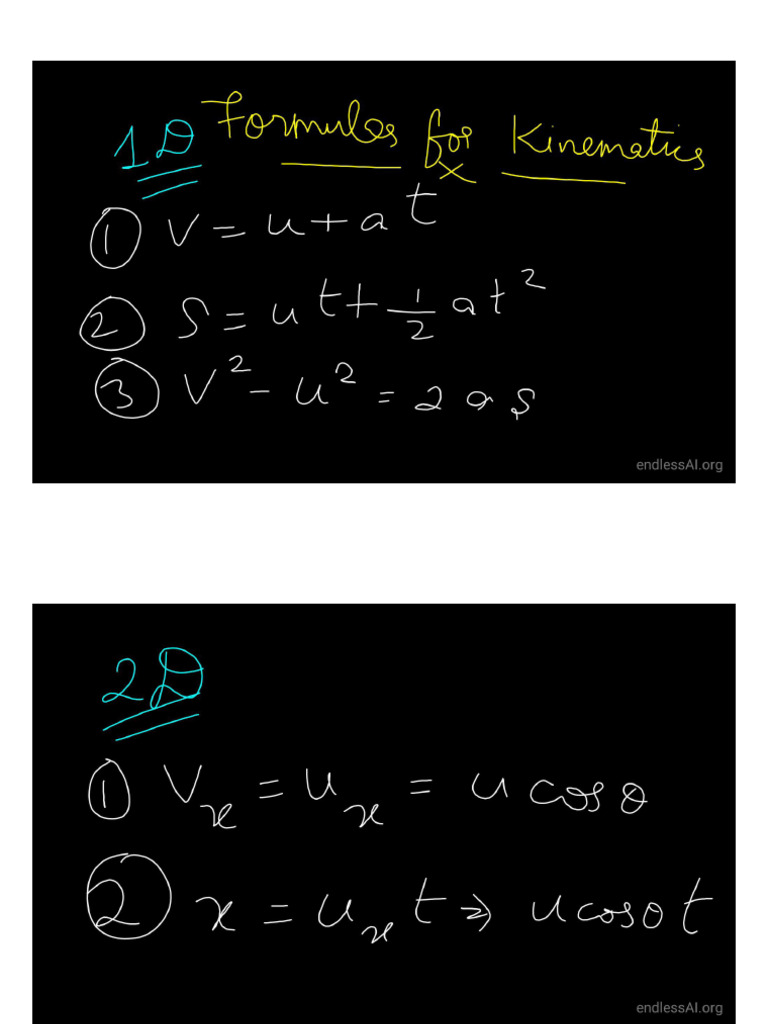 1D Formulas for Kinematics
① v = u + at
② S = ut + 1/2 at²
③ v² - u² = 2as
endlessAI.org
2D
① Vₓ = uₓ = u cosθ
② x = uₓt ⇒ u cosθ t
endlessAI.org